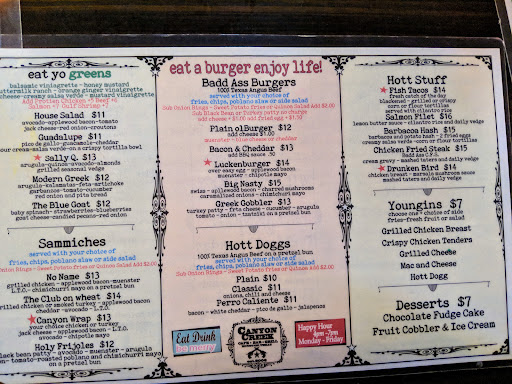 eat yo greens
balsamic vinaigrette - honey mustard
buttermilk ranch - orange ginger vinaigrette
cheese-creamy salsa verde - mustard vinaigrette
Add Protien Chicken +5 Beef +6
Salmon +7 Gulf Shrimp +7
House Salad $11
avocado-applewood bacon-tomato
jack cheese-red onion-croutons
Guadalupe $11
pico de gallo-guacamole-cheddar
sour cream-salsa verde-on a crispy tortilla bowl
Sally Q. $13
arugula-quinoa-avocado-almonds
grilled seasonal veggies
Modern Greek $12
arugula-kalamatas-feta-artichoke
garbanzos-tomato-cucumber
red onion and pita bread
The Blue Goat $12
baby spinach-strawberries-blueberries
goat cheese-candied pecans-red onion
Sammiches
served with your choice of
fries, chips, poblano slaw or side salad
Onion Rings - Sweet Potato Fries or Quinoa Salad Add $2.00
No Name $13
grilled chicken - applewood bacon-muenster
L.T.O. - chimichurri mayo on wheat
The Club on wheat $14
grilled chicken or smoked turkey - applewood bacon
cheddar - avocado - L.T.O.
Canyon Wrap $13
your choice chicken or turkey
jack cheese - applewood bacon - L.T.O.
avocado - chipotle mayo
Holy Frijoles $12
black bean patty - avocado - muenster - arugula
tomato-roasted poblano and chimichurri mayo
on a pretzel bun
eat a burger enjoy life!
Badd Ass Burgers
100% Texas Angus Beef
served with your choice of
fries, chips, poblano slaw or side salad
Sub Onion Rings - Sweet Potato Fries or Quinoa Salad Add $2.00
Sub Black Bean or Turkey patty no charge
add cheese + $1.00 add fried egg + $1.75
Plain olBurger $12
add cheese $1.00
muenster - blue-cheddar
Bacon & Cheddar $13
add BBQ sauce .50
Luckenburger $14
over easy egg - applewood bacon
muenster - chipotle mayo
Big Nasty $15
swiss - applewood bacon - charred mushrooms
caramelized onions - mayo on a pretzel bun
Greek Gobbler $13
turkey patty - feta cheese - cucumber - arugula
tomato - onion - tzatziki on a pretzel bun
Hott Doggs
100% Texas Angus Beef on a pretzel bun
served with your choice of
fries, chips, poblano slaw or side salad
Sub Onion Rings - Sweet Potato Fries or Quinoa Add $2.00
Plain $10
Classic $11
onions, chili and cheese
Perro Caliente $11
bacon - white cheddar - pico de gallo - jalapenos
Eat Drink
be marry
CANYON
CREEK
CAFE • BAR • GRILL
Happy Hour
4pm -7pm
Monday - Friday
Hott Stuff
Fish Tacos $14
fresh catch of the day
blackened - grilled or crispy
corn or flour tortillas
served with chipotle mayo
Salmon Filet $16
lemon butter sauce - cilantro rice and daily vedge
Barbacoa Hash $15
barbacoa and potato hash - 2 fried eggs
creamy salsa verde - corn or flour tortillas
Chicken Fried Steak $15
cream gravy - mashed taters and daily vedge
Drunken Bird $14
chicken breast - marsala mushroom sauce
mashed taters and daily vedge
Youngins $7
choose one + choice of side
fries-fresh fruit or salad
Grilled Chicken Breast
Crispy Chicken Tenders
Grilled Cheese
Mac and Cheese
Hott Dogg
Desserts $7
Chocolate Fudge Cake
Fruit Cobbler & Ice Cream